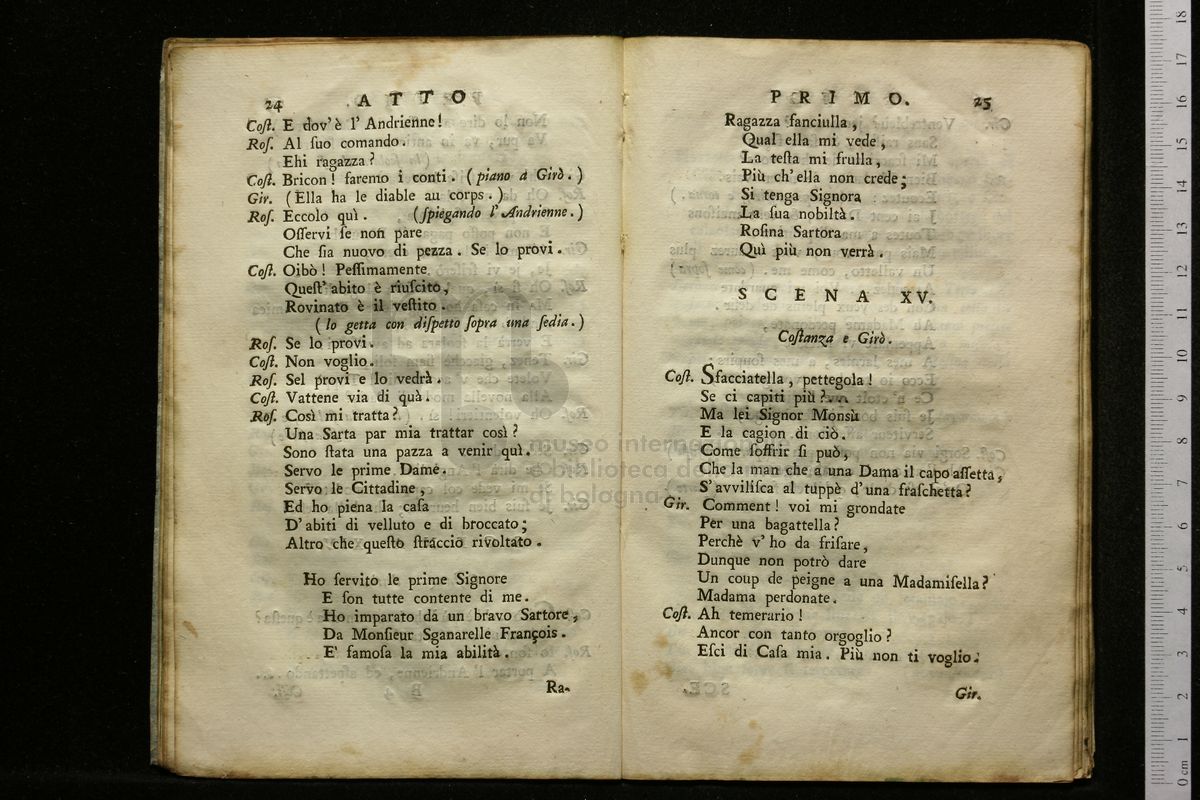 24 ATTO
Coſt. E dov'è l' Andrienne!
Roſ. Al ſuo comando.
Ehi ragazza?
Coſt. Bricon! faremo i conti. (piano a Girò.)
Gir. (Ella ha le diable au corps.)
Roſ. Eccolo quì. (ſpiegando l' Andrienne.)
Oſſervi ſe non pare
Che ſia nuovo di pezza. Se lo provi.
Coſt. Oibò! Peſſimamente
Queſt' abito è riuſcito,
Rovinato è il veſtito.
(lo getta con diſpetto ſopra una ſedia.)
Roſ. Se lo provi.
Coſt. Non voglio.
Roſ. Sel provi e lo vedrà.
Coſt. Vattene via di quà.
Roſ. Così mi tratta?
Una Sarta par mia trattar così?
Sono ſtata una pazza a venir quì.
Servo le prime Dame.
Servo le Cittadine,
Ed ho piena la caſa
D'abiti di velluto e di broccato;
Altro che queſto ſtraccio rivoltato.
Ho ſervito le prime Signore
E ſon tutte contente di me.
Ho imparato da un bravo Sartore,
Da Monſieur Sganarelle François.
E' famoſa la mia abilità.
Ra-
PRIMO. 25
Ragazza fanciulla,
Qual ella mi vede,
La teſta mi frulla,
Più ch'ella non crede;
Si tenga Signora
La ſua nobiltà.
Roſina Sartora
Quì più non verrà.
SCENA XV.
Coſtanza e Girò.
Coſt. Sfacciatella, pettegola!
Se ci capiti più?
Ma lei Signor Monsù
E la cagion di ciò.
Come ſoffrir ſi può,
Che la man che a una Dama il capo aſſetta,
S'avviliſca al tuppè d'una fraſchetta?
Gir. Comment! voi mi grondate
Per una bagattella?
Perchè v'ho da friſare,
Dunque non potrò dare
Un coup de peigne a una Madamiſella?
Madama perdonate.
Coſt. Ah temerario!
Ancor con tanto orgoglio?
Eſci di Caſa mia. Più non ti voglio.
Gir.
museo internazionale
e biblioteca de
di bologna
0 cm 1 2 3 4 5 6 7 8 9 10 11 12 13 14 15 16 17 18